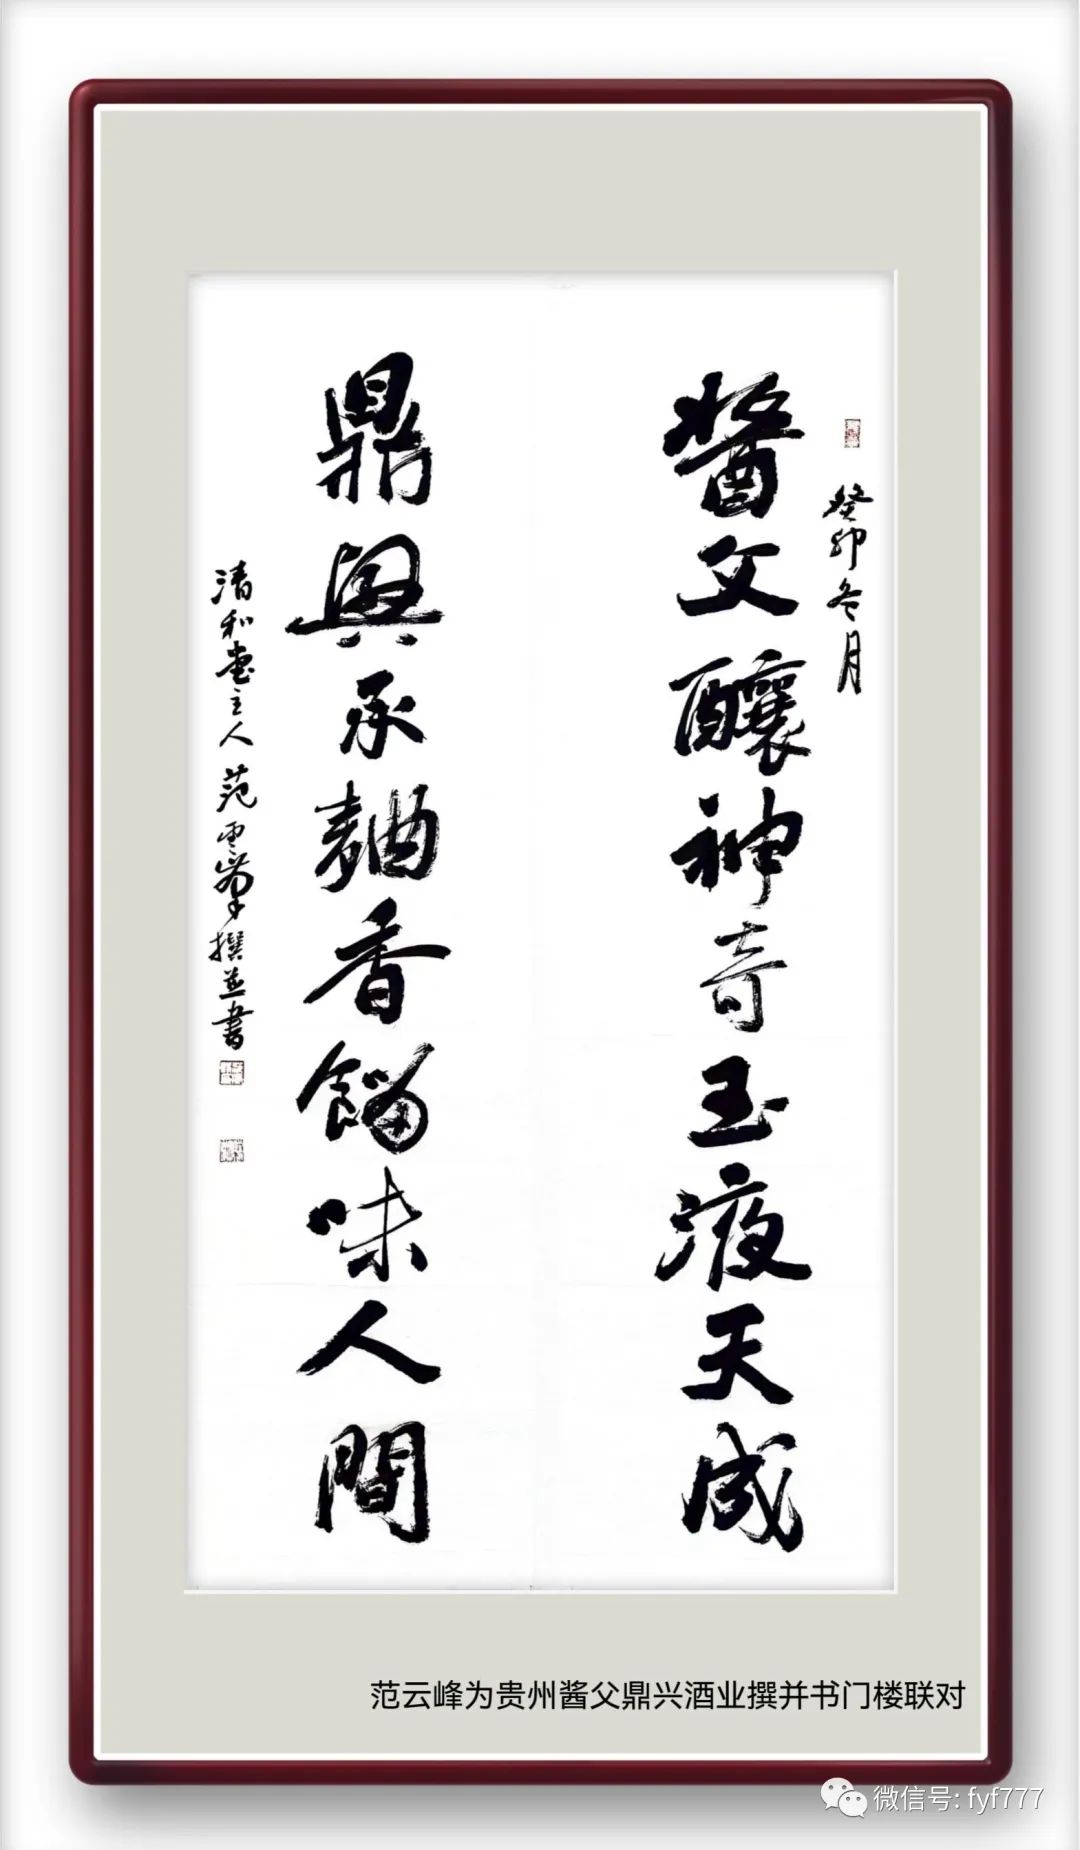 癸卯冬月
醬父釀神奇玉液天成
鼎興承麯香餾味人間
清和堂主人范雲峯撰並書
范云峰为贵州酱父鼎兴酒业撰并书门楼联对
微信号: fyf777